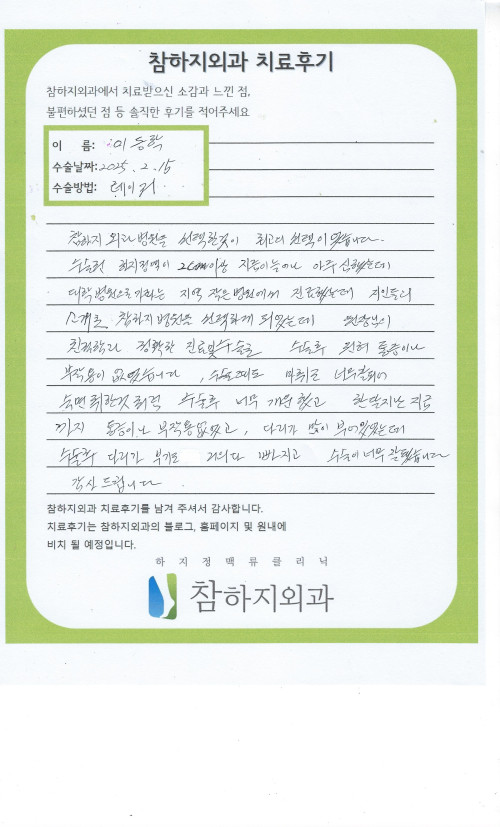 참하지외과 치료후기
참하지외과에서 치료받으신 소감과 느낀 점,
불편하셨던 점 등 솔직한 후기를 적어주세요
이 름: 이동락
수술날짜: 2025. 2. 15
수술방법: 레이저
참하지 외과병원을 선택한것이 최고의 선택이었습니다.
수술전 하지정맥이 2cm이상 지름이 늘어나 아주 심했는데
대학병원으로 가라는 지역 작은병원에서 진료했는데 지인들의
소개로 참하지병원을 선택하게 되었는데 원장님의
친절함과 정확한 진료및수술로 수술후 전혀 통증이나
부작용이 없었습니다, 수술때도 마취로 너무잘되어
숙면취한것처럼 수술후 너무 개운했고 한달지난 지금
까지 통증이나 부작용없었고, 다리가 많이 부어있었는데
수술후 다리가 부기도 거의다 빠지고 수술이너무 잘됐습니다
감사 드립니다
참하지외과 치료후기를 남겨 주셔서 감사합니다.
치료후기는 참하지외과의 블로그, 홈페이지 및 원내에
비치 될 예정입니다.
하지정맥류클리닉
참하지외과